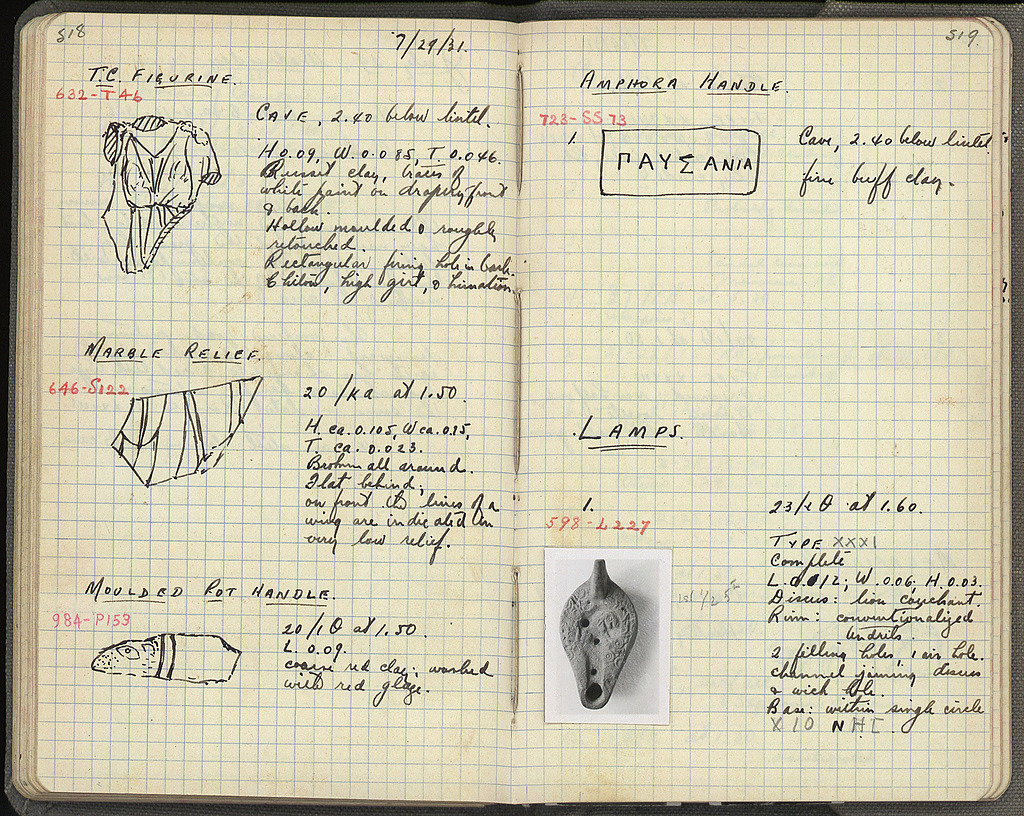 518
7/29/31.
T.C. FIGURINE.
632-T46
CAVE, 2.40 below lintel.
H 0.09, W. 0.085, T. 0.046.
Russet clay, traces of
white paint on drapery front
& back.
Hollow moulded & roughly
retouched.
Rectangular firing hole in back.
Chiton, high girt, & himation.
MARBLE RELIEF.
646-S122
20/ΚΑ at 1.50.
H. ca. 0.105, W ca. 0.15,
T. ca. 0.023.
Broken all around.
Flat behind;
on front the lines of a
wing are indicated in
very low relief.
MOULDED POT HANDLE.
984-P159
20/ Θ at 1.50.
L. 0.09.
coarse red clay; washed
with red glaze.
519.
AMPHORA HANDLE.
723-SS 73
1.
ΠΑΥΣΑΝΙΑ
Cave, 2.40 below lintel
fine buff clay.
LAMPS.
1.
598-L227
23/ Θ at 1.60.
TYPE XXXI
Complete
L. 0.12; W. 0.06; H. 0.03.
Discus: lion couchant.
Rim: conventionalized
tendrils.
2 filling holes, 1 air hole.
channel joining discus
& wick hole.
Base: within single circle
ΧΙΟΝΗC